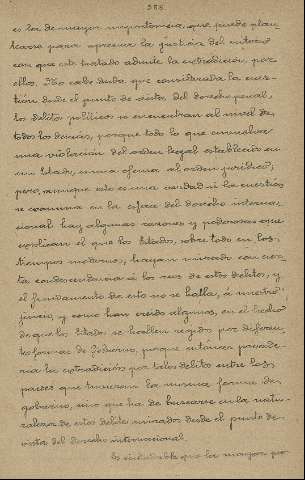 es los de mayor importancia, que puede plan-
tearse para apreciar la justicia del criterio
con que este tratado admite la extradición por
ellos. No cabe duda que considerada la cues-
tión desde el punto de vista del derecho penal,
los delitos políticos se encuentran al nivel de
todos los demás, porque todo lo que envuelve
una violación del orden legal establecido en
un Estado, una ofensa al orden jurídico;
pero, aunque esto es una verdad si la cuestión
se examina en la esfera del derecho interna-
cional hay algunas razones y poderosas que
explican el que los Estados, sobre todo en los
tiempos modernos, hayan mirado con cier-
ta condescendencia á los reos de estos delitos, y
el fundamento de esto no se halla, á nuestro
juicio, y como han creído algunos, en el hecho
de que los Estados se hallen regidos por diferen-
tes formas de Gobierno, porque entonces procede-
ria la extradición por tales delitos entre los
países que tuvieran la misma forma de
gobierno, sino que ha de buscarse en la natu-
raleza de estos delitos mirados desde el punto de
vista del derecho internacional.
Es indudable que la mayor par